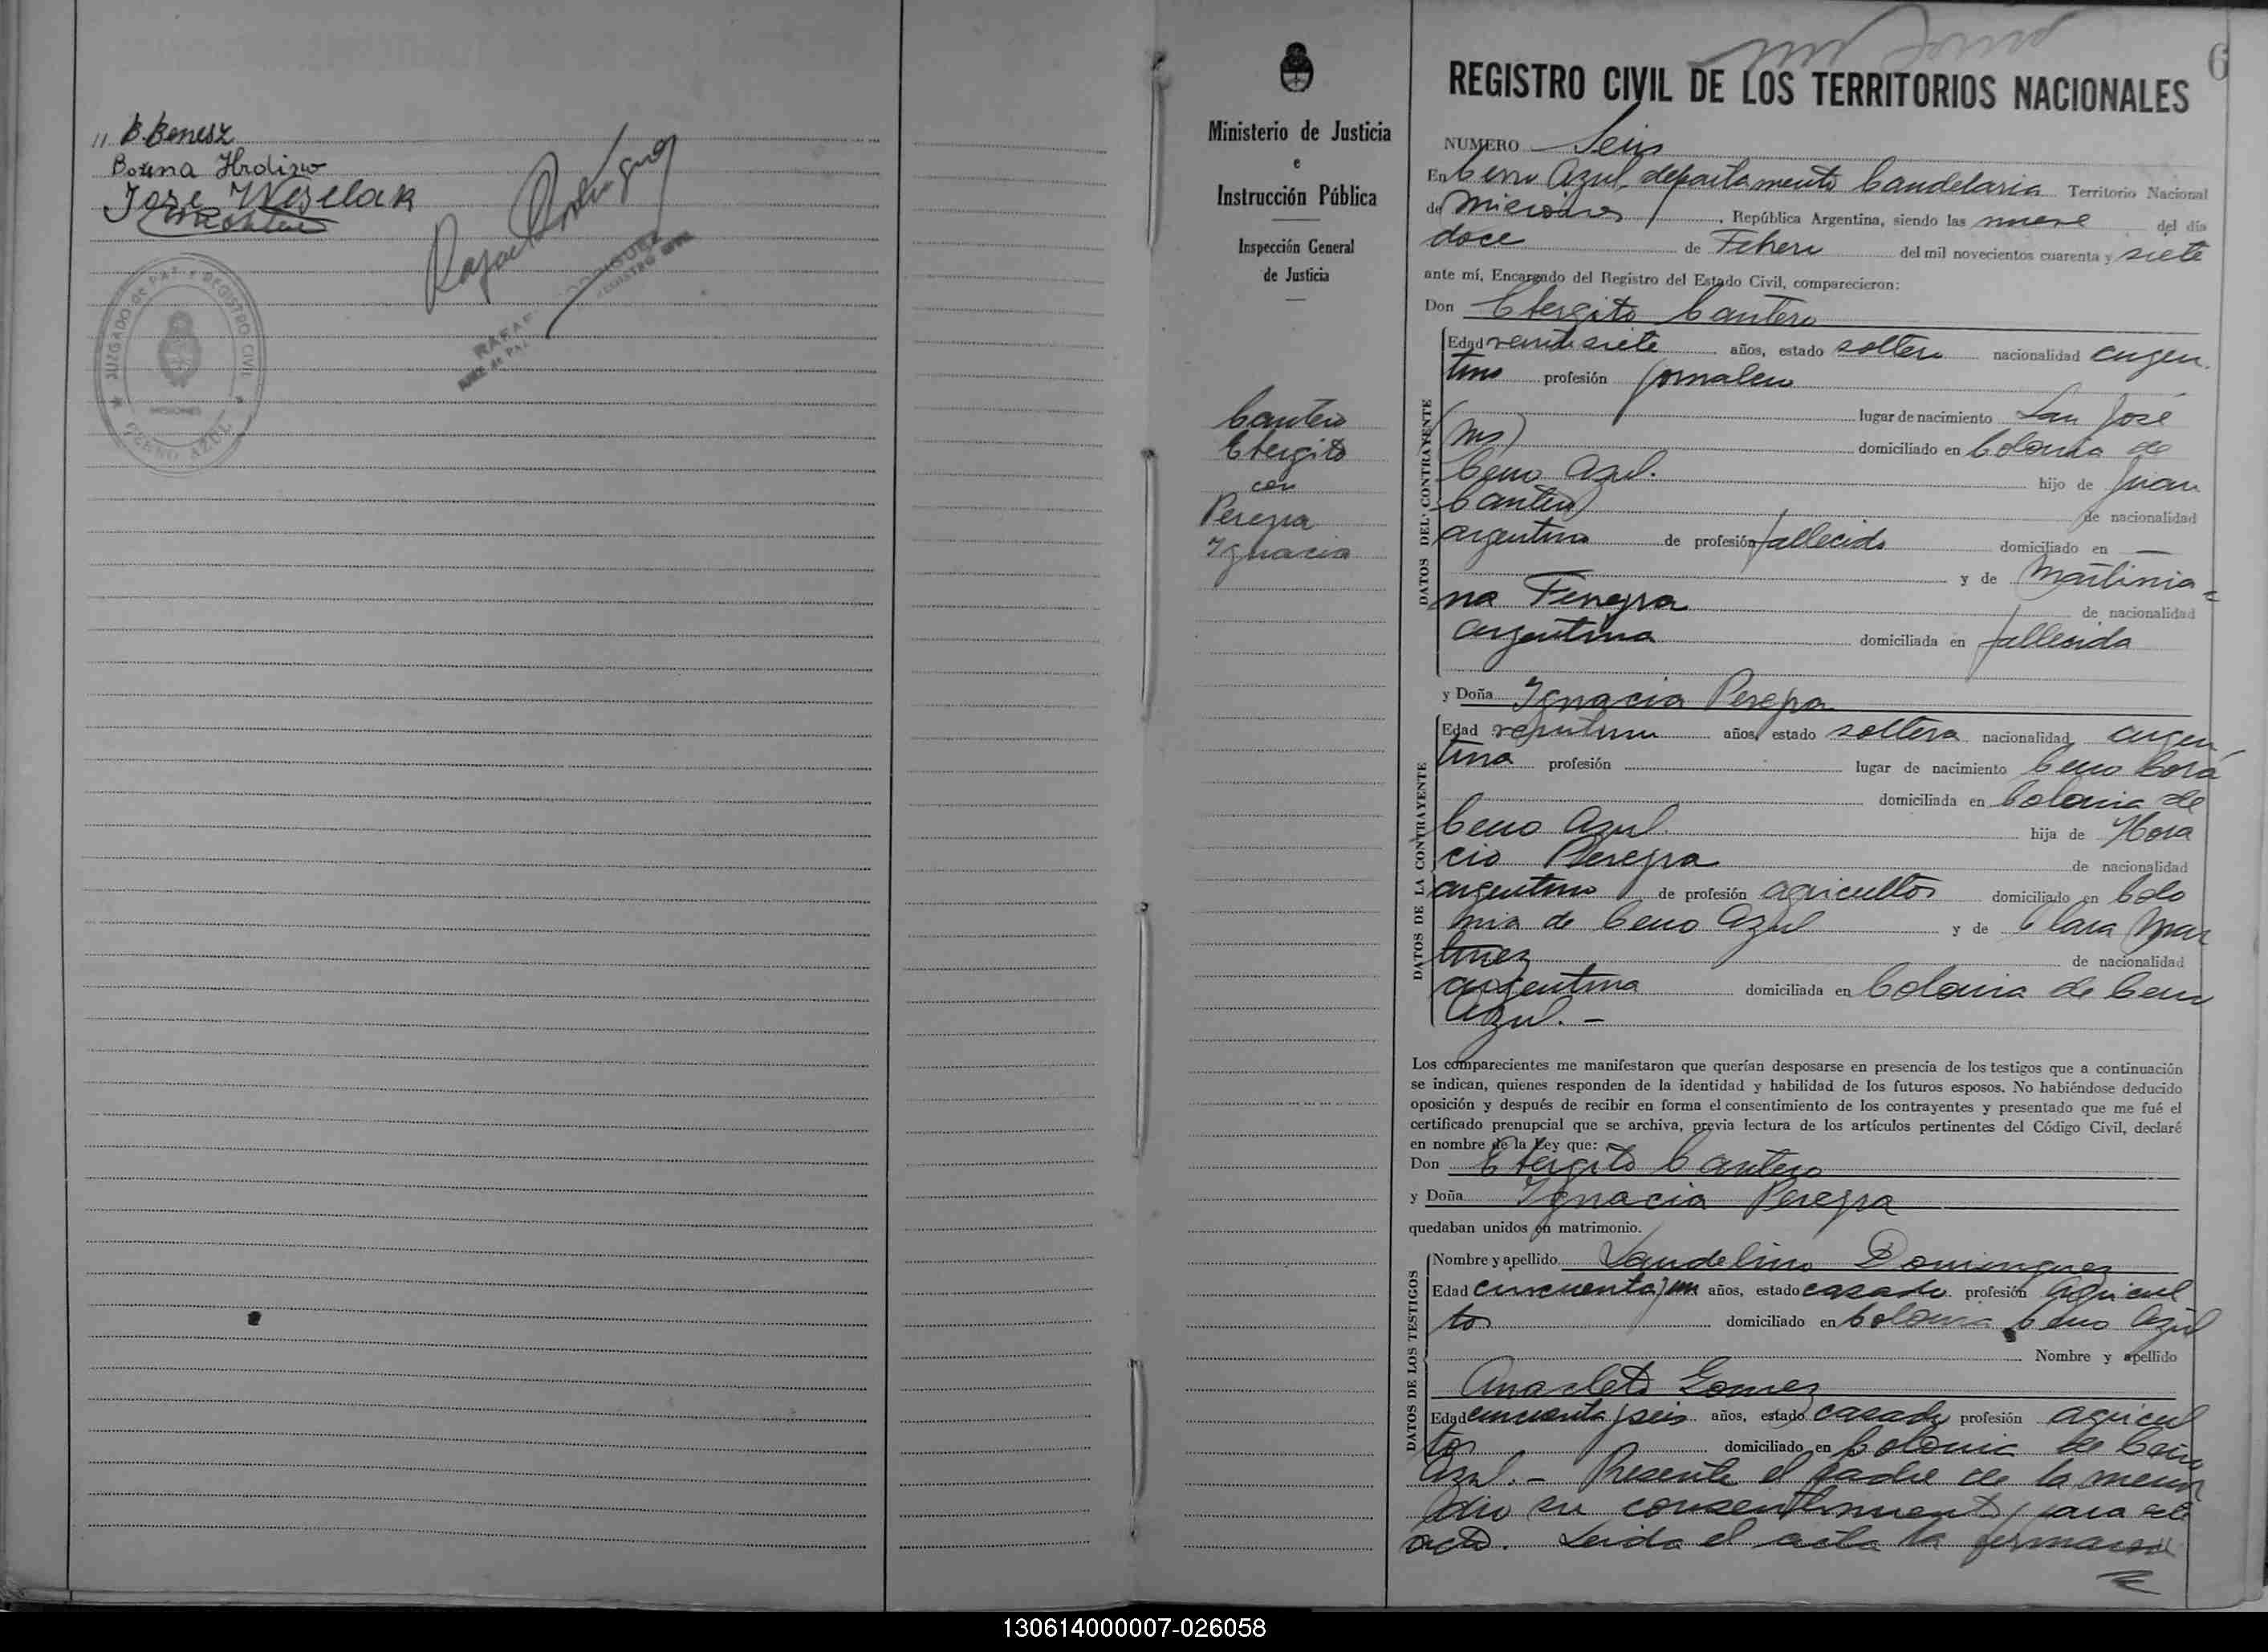 B. Benesz
Bozena Hrdizw
Jose Weselak
Rafael Rodriguez
JUZGADO DE PAZ Y REGISTRO CIVIL
MISIONES
CERRO AZUL
Ministerio de Justicia
e
Instrucción Pública
Inspección General
de Justicia
Cantero
con
Pereyra
Ignacia
6
REGISTRO CIVIL DE LOS TERRITORIOS NACIONALES
NUMERO Seis
En Cerro Azul, departamento Candelaria Territorio Nacional
de Misiones, República Argentina, siendo las nueve del día
doce de Febrero del mil novecientos cuarenta y siete
ante mí, Encargado del Registro del Estado Civil, comparecieron:
Don Cantero
Edad veintisiete años, estado soltero nacionalidad argen
tino profesión jornalero
lugar de nacimiento San José
(Ms) domiciliado en Colonia de
Cerro Azul. hijo de Juan
Cantero de nacionalidad
argentino de profesión fallecido domiciliado en —
y de Martinia=
na Ferreyra de nacionalidad
argentina domiciliada en fallecida
y Doña Ignacia Pereyra
Edad años, estado soltera nacionalidad argen
tina profesión lugar de nacimiento Cerro Corá
domiciliada en Colonia de
Cerro Azul. hija de Hora
cio Pereyra de nacionalidad
argentino de profesión agricultor domiciliado en Colo
nia de Cerro Azul y de Clara Mar
tinez de nacionalidad
argentina domiciliada en Colonia de Cerro
Azul. —
Los comparecientes me manifestaron que querían desposarse en presencia de los testigos que a continuación
se indican, quienes responden de la identidad y habilidad de los futuros esposos. No habiéndose deducido
oposición y después de recibir en forma el consentimiento de los contrayentes y presentado que me fué el
certificado prenupcial que se archiva, previa lectura de los artículos pertinentes del Código Civil, declaré
en nombre de la Ley que:
Don Cantero
y Doña Ignacia Pereyra
quedaban unidos en matrimonio.
Nombre y apellido Laudelino Dominguez
Edad cincuenta y un años, estado casado profesión agricul
tor domiciliado en Colonia Cerro Azul
Nombre y apellido
Anacleto Gomez
Edad cincuenta y seis años, estado casado profesión agricul
tor domiciliado en Colonia de Cerro
Azul. — Presente el padre de la menor
dio su consentimiento para este
acto. Leida el acta la firmaron
DATOS DEL CONTRAYENTE
DATOS DE LA CONTRAYENTE
DATOS DE LOS TESTIGOS
130614000007-026058